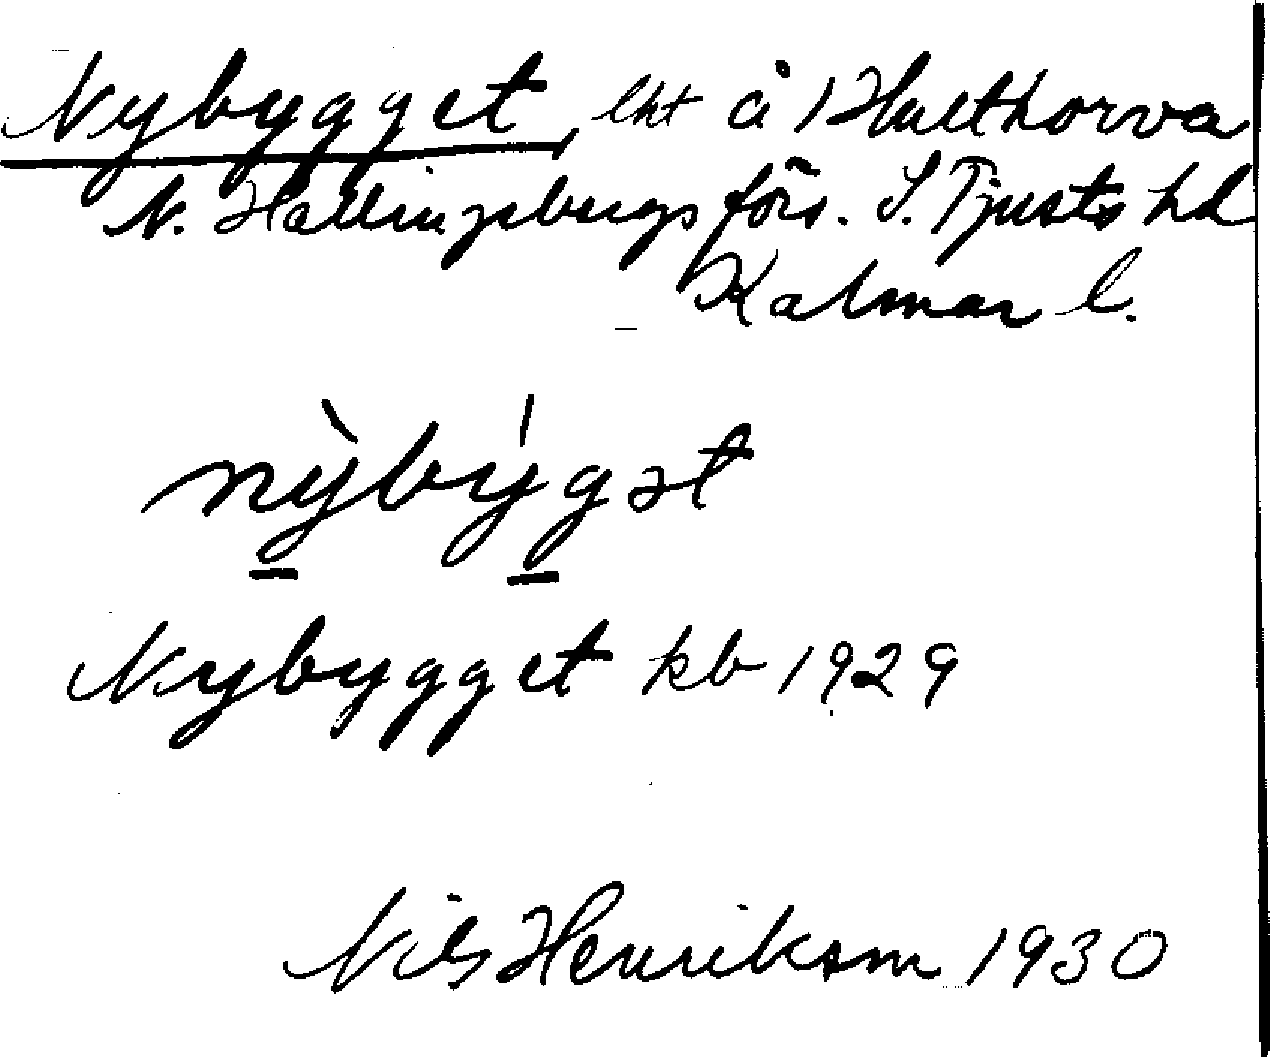 Nybygget, lht å 1 Hulthorva
N. Hallingebergs förs. S. Tjusts hd
Kalmar l.
nỳbýgət
Nybygget kb 1929
Nils Henrikson 1930